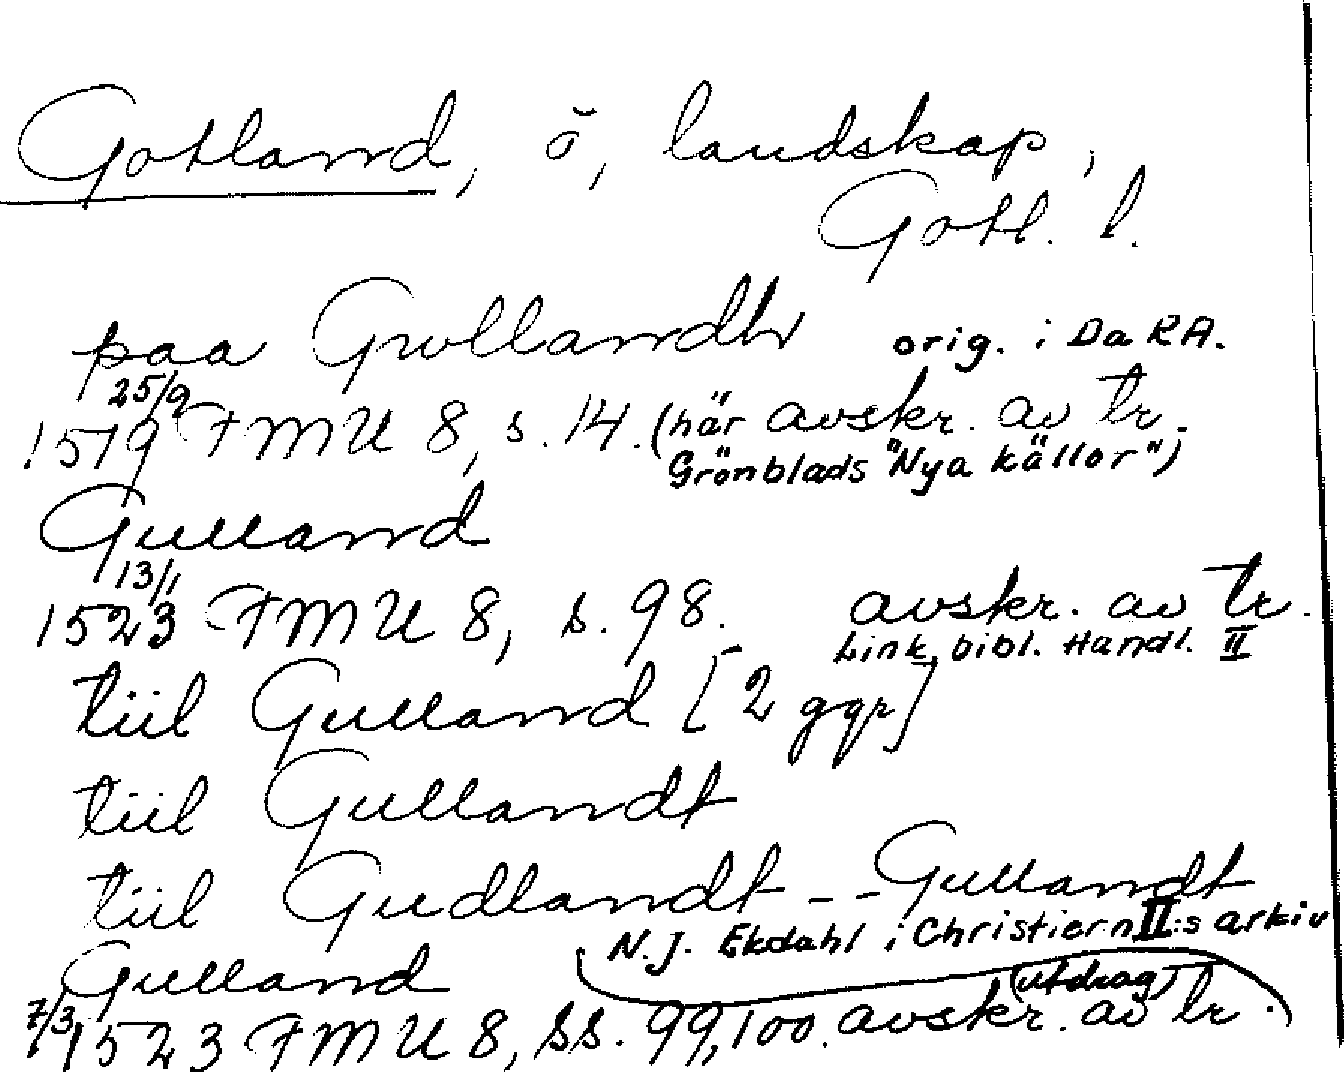 Gotland, ö, landskap,
Gotl. l.
paa Gwllandh orig. i Da RA.
25/9
1519 FMU 8, s. 14. (här avskr. av tr.
Grönblads "Nya källor")
Gulland
13/1
1523 FMU 8, s. 98. avskr. av tr.
Link. bibl. Handl. II
tiil Gulland [2 ggr]
tiil Gullandt
tiil Gudlandt -- Gullandt
N.J. Ekdahl i Christiern II:s arkiv
Gulland (utdrag)
7/3 1523 FMU 8, ss. 99, 100. avskr. av tr.